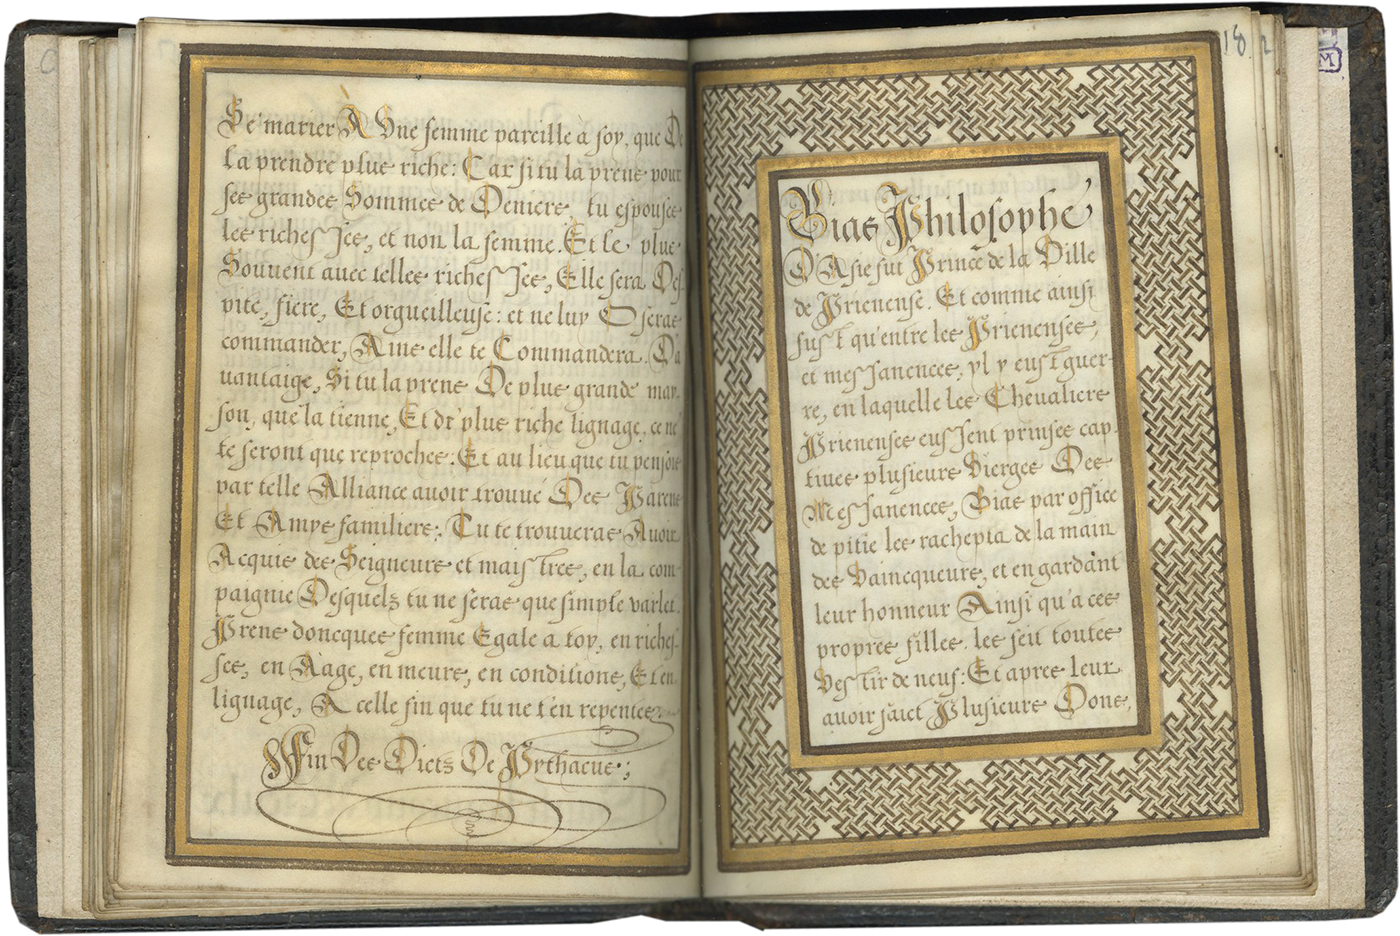 Se marier A Une femme pareille a soy, que De
la prendre plus riche: Car si tu la prens pour
ses grandes Sommes de Deniers, tu espouses
les richesses, et non la femme. Et le plus
Souvent avec telles richesses, Elle sera Des
pite, fiere, Et orgueilleuse: et ne luy Oseras
commander, Ains elle te Commandera. Da
vantaige, Si tu la prens De plus grande may
son, que la tienne, Et de plus riche lignage, ce ne
te seront que reproches. Et au lieu que tu pensois
par telle Alliance avoir trouvé Des Parens
Et Amys familiers; Tu te trouveras Avoir
Acquis des Seigneurs et maistres, en la com-
paignie Desquelz tu ne seras que simple varlet.
Prens doncques femme Egale a toy, en riches-
ses, en Aage, en meurs, en conditions, Et en
lignage, A celle fin que tu ne t'en repentes.
Fin Des Dictz De Pythacus;
18
Bias Philosophe
D'Asie fut Prince de la Ville
de Prienense. Et comme ainsi
fust qu'entre les Prienenses,
et messanences, yl y eust guer-
re, en laquelle les Chevaliers
Prienenses eussent prinses cap-
tives plusieurs Vierges Des
Messanences, Bias par office
de pitie les rachepta de la main
des Vaincqueurs, et en gardant
leur honneur Ainsi qu'a ces
propres filles. les feit toutes
Vestir de neuf: Et apres leur
avoir faict Plusieurs Dons,